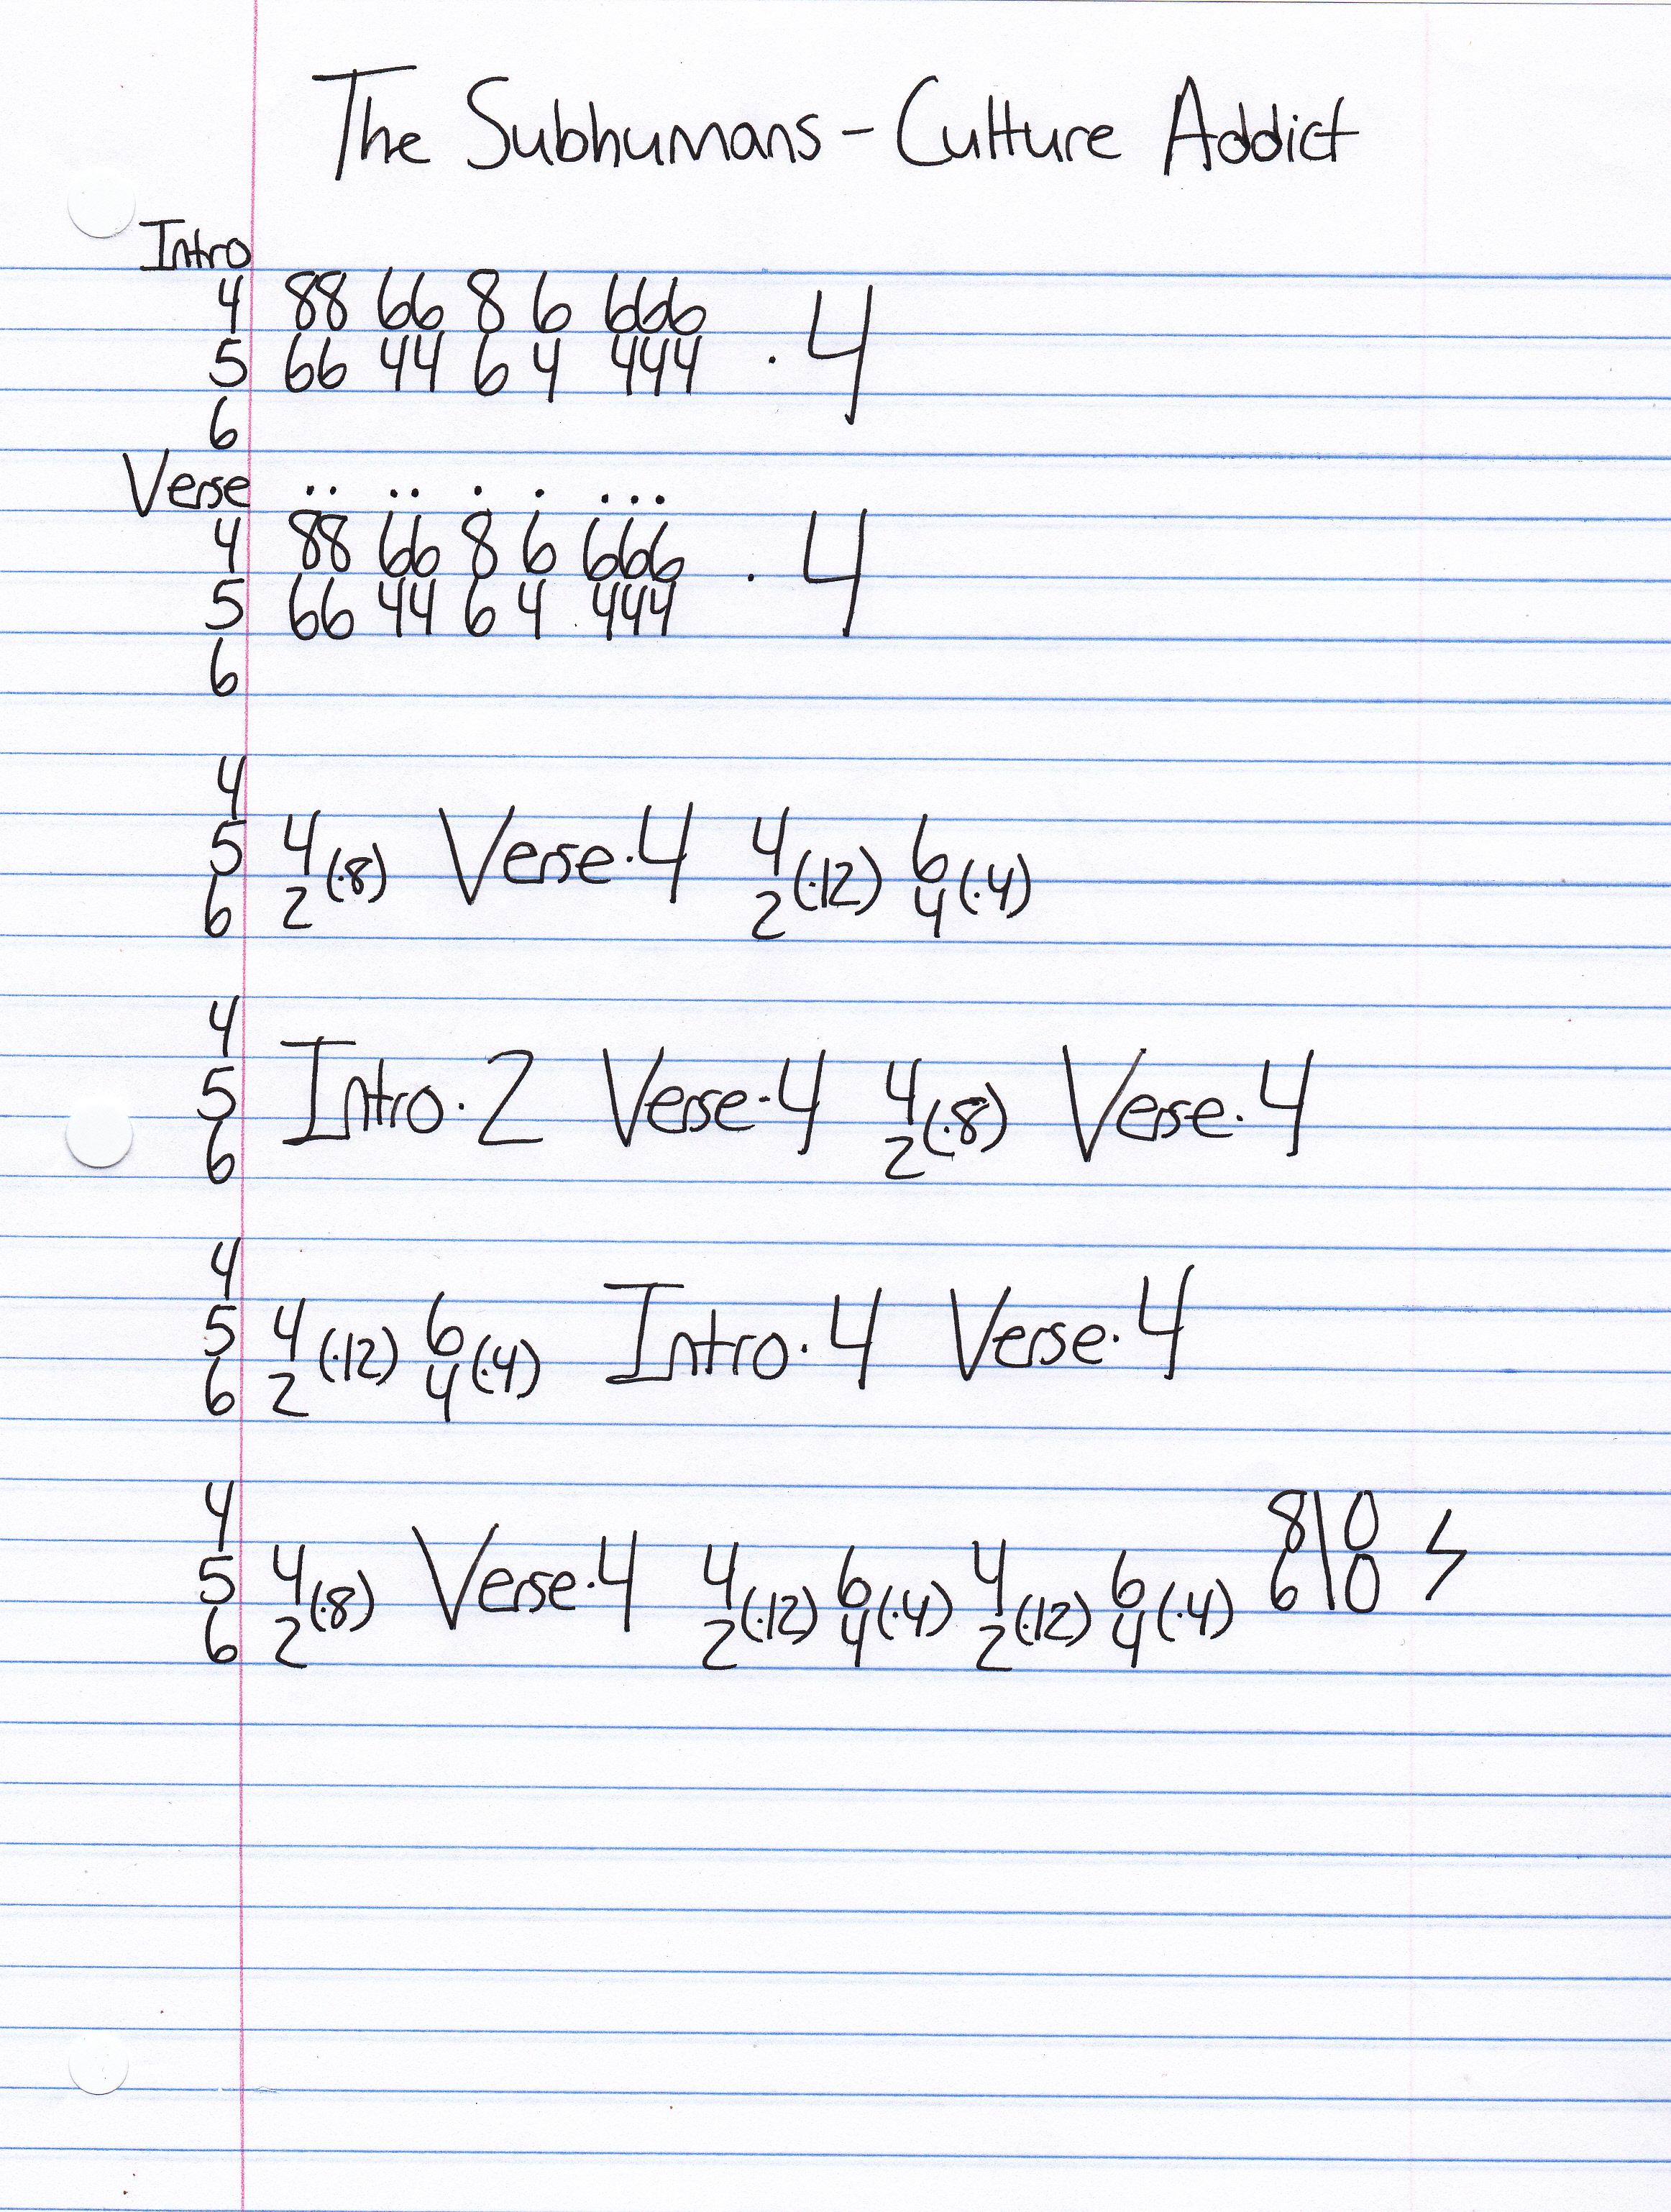 The Subhumans - Culture Addict
Intro
4 88 66 8 6 666
5 66 44 6 4 444 · 4
6
Verse ·· ·· · · ···
4 88 66 8 6 666
5 66 44 6 4 444 · 4
6
4
5 4 (·8) Verse·4 4 (·12) 6 (·4)
6 2 2 4
4
5 Intro·2 Verse·4 4 (·8) Verse·4
6 2
4
5 4 (·12) 6 (·4) Intro·4 Verse·4
6 2 4
4 8\0
5 4 (·8) Verse·4 4 (·12) 6 (·4) 4 (·12) 6 (·4) 6\0
6 2 2 4 2 4